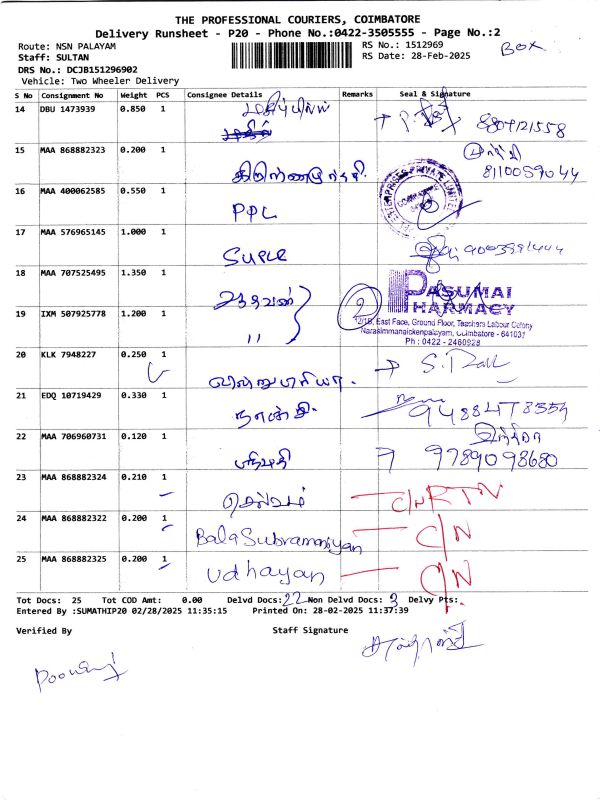 THE PROFESSIONAL COURIERS, COIMBATORE
Delivery Runsheet - P20 - Phone No.:0422-3505555 - Page No.:2
Route: NSN PALAYAM RS No.: 1512969 BOX
Staff: SULTAN RS Date: 28-Feb-2025
DRS No.: DCJB151296902
Vehicle: Two Wheeler Delivery
S No Consignment No Weight PCS Consignee Details Remarks Seal & Signature
14 DBU 1473939 0.850 1
15 MAA 868882323 0.200 1 8110059044
16 MAA 400062585 0.550 1 PPL
17 MAA 576965145 1.000 1 Suple
18 MAA 707525495 1.350 1 2 PASUMAI PHARMACY
12/1B, East Face, Ground Floor, Teachers Labour Colony
Narasimmanaickenpalayam, Coimbatore - 641031
Ph : 0422 - 2460928
19 IXM 507925778 1.200 1 "
20 KLK 7948227 0.250 1
21 EDQ 10719429 0.330 1 9488478354
22 MAA 706960731 0.120 1 9789098680
23 MAA 868882324 0.210 1 செல்வம் C/N RTN
24 MAA 868882322 0.200 1 Bala Subramaniyan C/N
25 MAA 868882325 0.200 1 Udhayan C/N
Tot Docs: 25 Tot COD Amt: 0.00 Delvd Docs: 22 Non Delvd Docs: 3 Delvy Pts:
Entered By :SUMATHIP20 02/28/2025 11:35:15 Printed On: 28-02-2025 11:37:39
Verified By Staff Signature